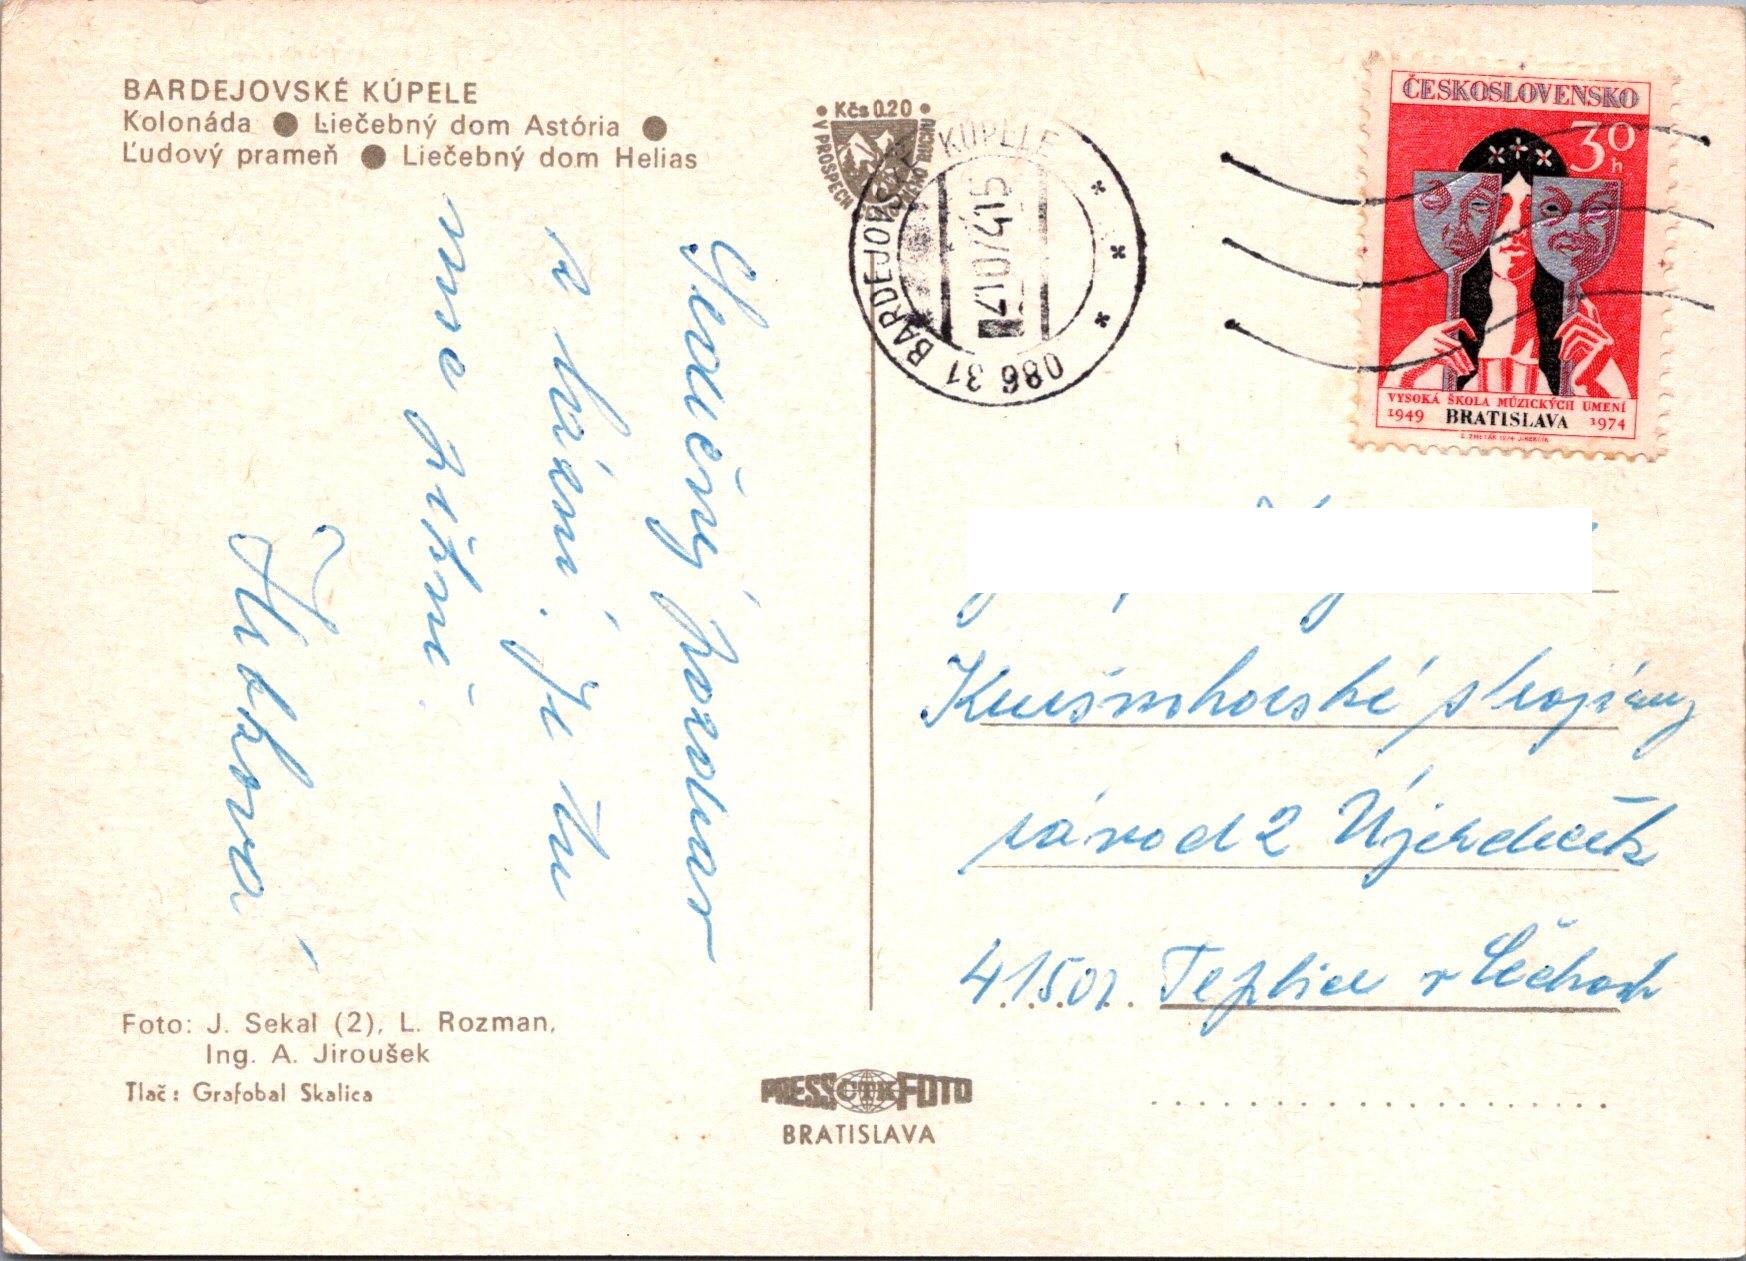 BARDEJOVSKÉ KÚPELE
Kolonáda ● Liečebný dom Astória ●
Ľudový prameň ● Liečebný dom Helias
• Kčs 0.20 •
V PROSPECH
086 31 BARDEJOVSKÉ KÚPELE
ČESKOSLOVENSKO
30
h
VYSOKÁ ŠKOLA MÚZICKÝCH UMENÍ
1949 BRATISLAVA 1974
Srdečný pozdrav
a lázní. Je tu
moc
Krušnohorské strojírny
závod 2 Újezdeček
41501 Teplice v Čechách
Foto: J. Sekal (2), L. Rozman,
Ing. A. Jiroušek
Tlač: Grafobal Skalica
PRESS ČTK FOTO
BRATISLAVA